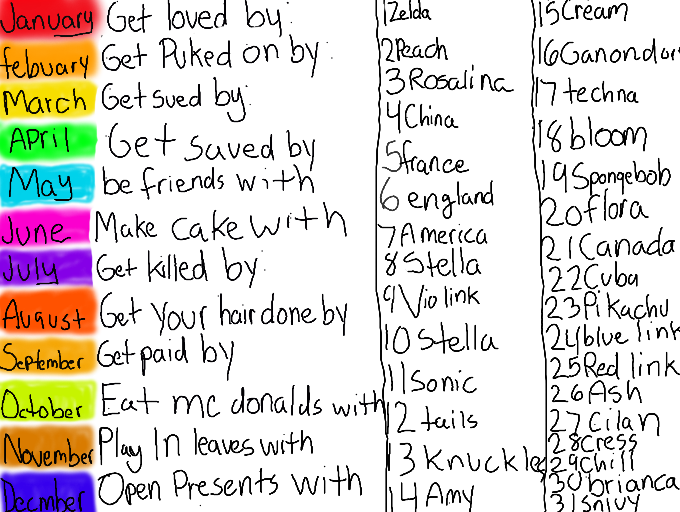 January Get loved by:
febuary Get Puked on by:
March Get sued by:
APril Get saved by
May be friends with
June Make cake with
July Get killed by:
August Get Your hair done by
September Get paid by
October Eat mc donalds with
November Play In leaves with
Decmber Open Presents with
1 Zelda
2 Peach
3 Rosalina
4 China
5 france
6 england
7 America
8 Stella
9 Vio link
10 Stella
11 Sonic
12 tails
13 Knuckles
14 Amy
15 Cream
16 Ganondorf
17 techna
18 bloom
19 Spongebob
20 flora
21 Canada
22 Cuba
23 Pikachu
24 blue link
25 Red link
26 Ash
27 Cilan
28 Cress
29 Chill
30 brianca
31 snivy